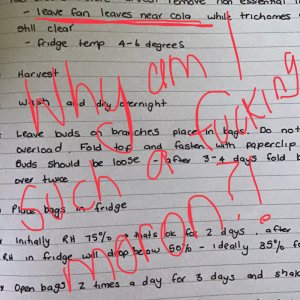 remove non essential
- leave fan leaves near cola while trichomes
still clear
- fridge temp 4-6 degrees
Harvest
Wash and dry overnight
Leave buds on branches place in bags. Do not
overload. Fold top and fasten with paperclip
Buds should be loose after 3-4 days fold b
over twice
Place bags in fridge
Initially RH 75% → thats ok for 2 days. after
RH in fridge will drop below 50% - ideally 35% fo
Open bags 2 times a day for 3 days and shak
Why am I
fucking
such a
moron?!